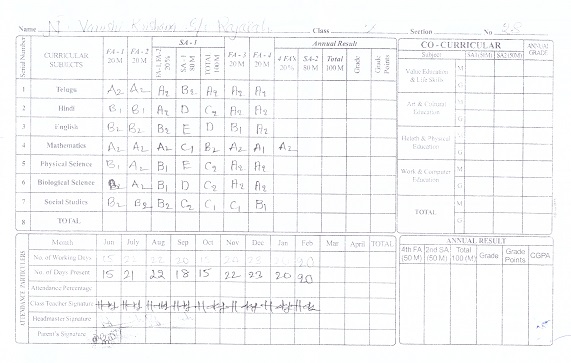 Name N Vamshi Krishna S/o Rajaiah Class 7 Section No 38
Serial Number CURRICULAR SUBJECTS FA - 1 20 M FA - 2 20 M SA - 1 FA-1,FA-2 20% SA - 1 80 M TOTAL 100M FA - 3 20 M FA - 4 20 M Annual Result 4 FAX 20% SA-2 80 M Total 100 M Grade Grade Points
1 Telugu A2 A2 A2 B2 A2 A2 A2
2 Hindi B1 B1 A2 D C2 A2 A2
3 English B2 B2 B2 E D B1 A2
4 Mathematics A2 A2 A2 C1 B2 A2 A1 A2
5 Physical Science B1 A2 B1 E C2 A2 A2
6 Biological Science B2 A2 B1 D C2 A2 A2
7 Social Studies B2 B2 B2 C2 C1 C1 B1
8 TOTAL
CO - CURRICULAR ANNUAL GRADE
Subject SA1(50M) SA2(50M)
Value Education & Life Skills M G
Art & Cultural Education M G
Health & Physical Education G
Work & Computer Education M G
TOTAL M G
ATTENDANCE PARTICULERS
Month Jun July Aug Sep Oct Nov Dec Jan Feb Mar April TOTAL
No. of Working Days 15 22 20 15 23 20 20
No. of Days Present 15 21 22 18 15 22 23 20 20
Attendance Percentage
Class Teacher Signature
Headmaster Signature
Parent's Signature
ANNUAL RESULT
4th FA (50 M) 2nd SA (50 M) Total 100 (M) Grade Grade Points CGPA